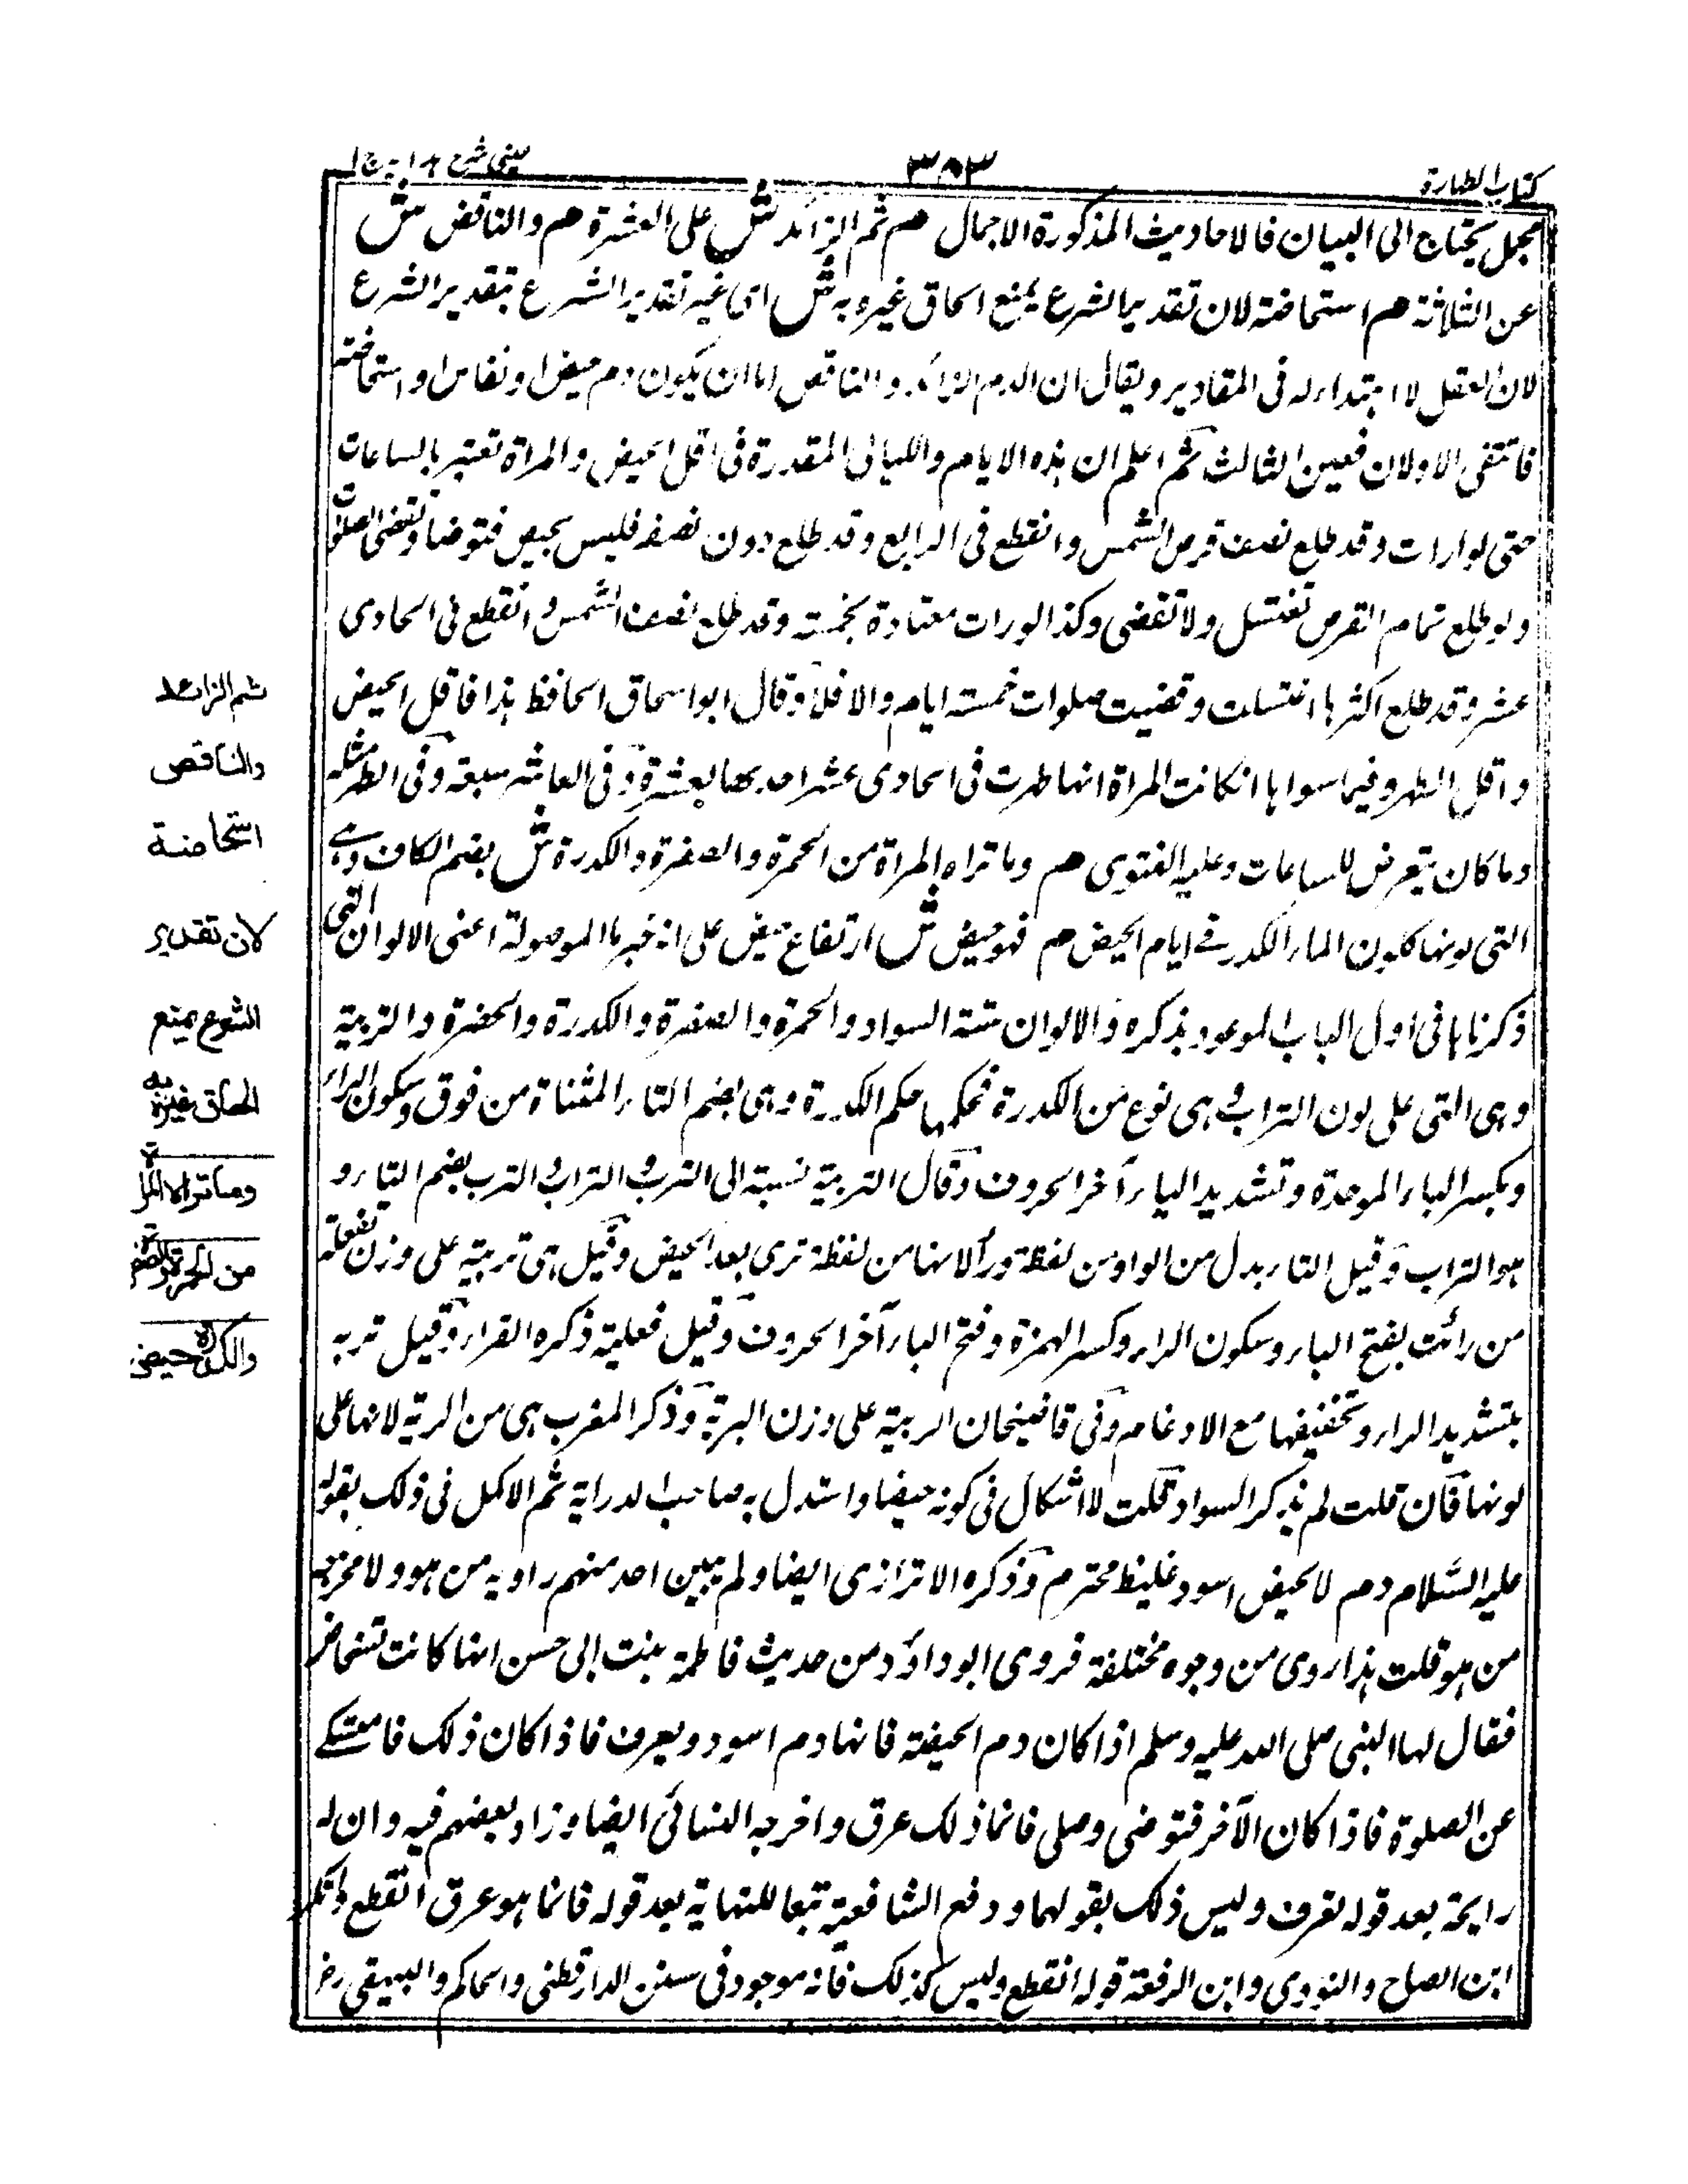 كتاب الطهارة
٣٨٣
عيني شرح هداية ج ا
مجمل يحتاج الى البيان فالاحاديث المذكورة الاجمال صم ثم الزائد ش على العشرة صم والناقص ش
عن الثلاثة صم استحاضة لان تقدير الشرع يمنع الحاق غيره به ش اى غير تقدير الشرع بتقدير الشرع
لان العقل لا اهتداء له فى المقادير ويقال ان الدم الزائد والناقص اما ان يكون دم حيض او نفاس او استحاضة
فانتفى الاولان فتعين الثالث ثم اعلم ان هذه الايام والليالى المقدرة فى اقل الحيض والمراة تعتبر بالساعات
حتى لو ارات وقد طلع نصف قرص الشمس وانقطع فى الرابع وقد طلع دون نصفه فليس بحيض فتوضأ وتقضى الصلوات
ولو طلع تمام القرص تغتسل ولا تقضى وكذا لو رات معتادة بخمسة وقد طلع نصف الشمس وانقطع فى الحادى
عشر وقد طلع اكثرها اغتسلت وقضيت صلوات خمسة ايام والا فلا وقال ابو اسحاق الحافظ هذا فاقل الحيض
واقل الطهر وفيما سواها انكانت المراة انها طهرت فى الحادى عشر اخذ بها بعشرة وفى العاشر سبعة وفى الطهر مثله
وما كان يتعرض للساعات وعليه الفتوى صم وما تراه المراة من الحمرة والصفرة والكدرة ش بضم الكاف وهى
التى لونها كلون الماء الكدر فى ايام الحيض صم فهو حيض ش ارتفاع حيض على انه خبر ما الموصولة اعنى الالوان التى
ذكرناها فى اول الباب الموعود بذكره والالوان ستة السواد والحمرة والصفرة والكدرة والخضرة والتربية
وهى التى على لون التراب وهى نوع من الكدرة فحكمها حكم الكدرة وهى بضم التاء المثناة من فوق وسكون الراء
وبكسر الباء الموحدة وتشديد الياء آخر الحروف وقال التربية نسبة الى الترب والتراب والترب بضم التاء و
هو التراب وقيل التاء بدل من الواو من لفظة ورأ لانها من لفظة ترى بعد الحيض وقيل هى تربية على وزن تفعلة
من رائت بفتح الباء وسكون الراء وكسر الهمزة وفتح الباء آخر الحروف وقيل فعلية ذكره الفراء وقيل تربه
بتشديد الراء وتخفيفها مع الادغام وفى قاضيخان الربية على وزن البرية وذكر المغرب هى من الرية لانها على
لونها فان قلت لم يذكر السواد قلت لا اشكال فى كونه حيضا واستدل به صاحب الدراية ثم الاكمل فى ذلك بقوله
عليه السلام دم لا لحيض اسود غليظ محترم وذكره الاترازى ايضا ولم يبين احد منهم راويه من هو ولا مخرجه
من هو قلت هذا روى من وجوه مختلفة فروى ابو داؤد من حديث فاطمة بنت ابى حسن انها كانت تستحاض
فقال لها النبى صلى الله عليه وسلم اذا كان دم الحيضة فانها دم اسود ويعرف فاذا كان ذلك فامسكى
عن الصلوة فاذا كان الآخر فتوضى وصلى فانما ذلك عرق واخرجه النسائى ايضا وزاد بعضهم فيه وان له
رايحة بعد قوله تعرف وليس ذلك بقولهما ودفع الشافعية تبعا للنهاية بعد قوله فانما هو عرق انقطع وانكر
ابن الصلاح والنووى وابن الرفعة قوله انقطع وليس كذلك فانه موجود فى سنن الدارقطنى والحاكم والبيهقى رض
ثم الزائد
والناقص
استحاضة
لان تقدير
الشرع يمنع
الحاق غيره به
وما تراه المراة
من الحمرة والصفرة
والكدرة حيض